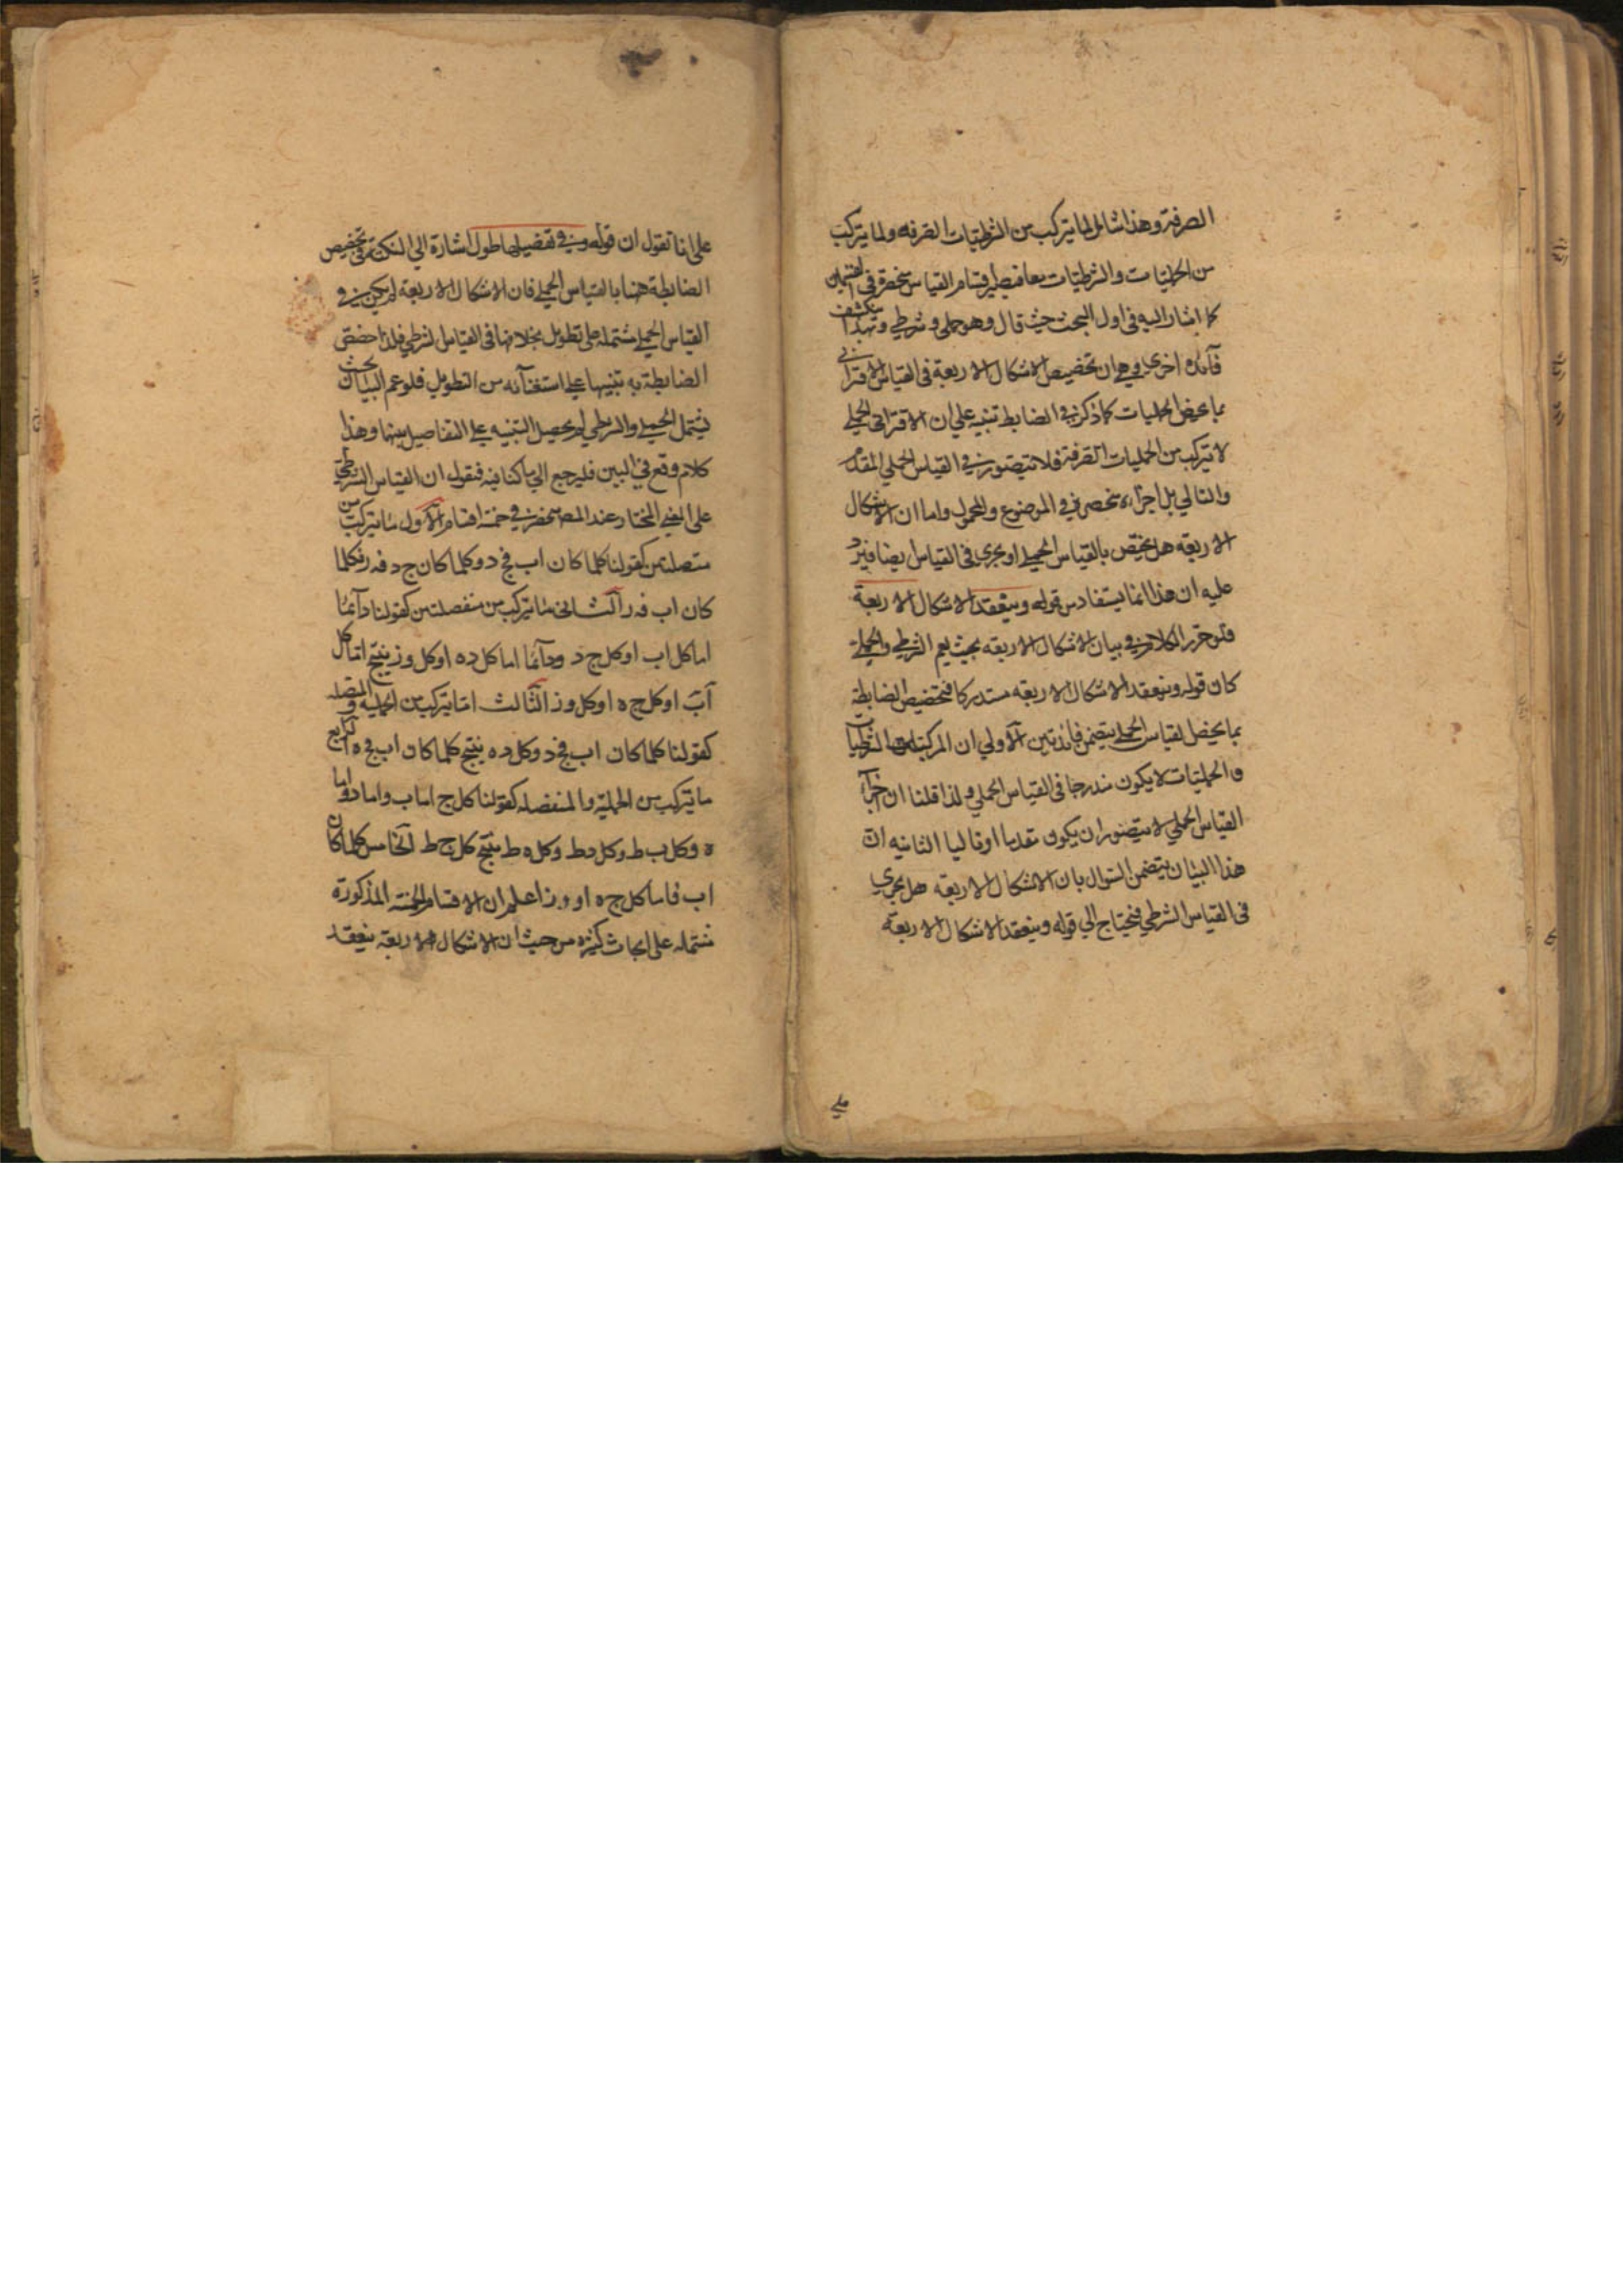 الصرفة وهذا شامل لما يتركب من الشرطيات الصرفه ولما يتركب
من الحمليات والشرطيات معا فيصير اقسام القياس منحصرة في القسمين
كما اشار اليه في اول البحث حيث قال وهو حملي وشرطي وبهذا ينكشف
فآئدة اخرى وهي ان تخصيص الاشكال الاربعة في القياس الاقتراني
بما يخص الحمليات كما ذكر في الضابط تنبيه على ان الاقتراني الحملي
لا يتركب من الحمليات الصرفة فلا يتصور في القياس الحملي المقدم
والتالي بل اجزاءه منحصر في الموضوع والمحمول واما ان الاشكال
الاربعه هل يختص بالقياس الحملي او يجري في القياس ايضا فيرد
عليه ان هذا انما يستفاد من قوله وينعقد الاشكال الاربعة
فلو حرر الكلام في بيان الاشكال الاربعه بحيث يعم الشرطي والحملي
كان قوله وينعقد الاشكال الاربعه مستدركا فتخصيص الضابطة
بما يخص القياس الحملي يتضمن فائدتين الاولي ان المركبات من الشرطيات
والحمليات لا يكون مندرجا في القياس الحملي ولذا قلنا ان اجزآء
القياس الحملي لا يتصور ان يكون مقدما او تاليا الثانيه ان
هذا البيان يتضمن السؤال بان الاشكال الاربعه هل يجري
في القياس الشرطي فيحتاج الي قوله وينعقد الاشكال الاربعة
علي
على انا نقول ان قوله وفي تفصيلها طول اشارة الي النكتة في تخصيص
الضابطة هنا بالقياس الحملي فان الاشكال الاربعه لم يكن في
القياس الحملي مشتمله على تطويل بخلافها في القياس الشرطي فلذا خصص
الضابطة به تنبيها على استغنآئه من التطويل فلو عمم البيان بحيث
يشتمل الحملي والشرطي لم يحصل التنبيه على التفاصيل بينهما وهذا
كلام وقع في البين فليرجع الي ما كنا فيه فنقول ان القياس الشرطي
على المختار عند المصـ منحصر في خمسة اقسام الاول ما يتركب من
متصلتين كقولنا كلما كان اب فج د وكلما كان ج د فه ر فكلما
كان اب فه ر الثاني ما يتركب من منفصلتين كقولنا دآئما
اما كل اب او كل ج د ودآئما اما كل د ه او كل و ز ينتج اما كل
آب او كل ج ه او كل و ز الثالث اما يتركب من الحمليه والمتصله
كقولنا كلما كان اب فج د وكل د ه ينتج كلما كان اب فج ه الرابع
ما يتركب من الحملية والمنفصله كقولنا كل ج اما ب واما د واما
ه وكل ب ط وكل د ط وكل ه ط ينتج كل ج ط الخامس كلما كان
اب فاما كل ج ه او و ز اعلم ان الاقسام الخمسة المذكورة
مشتمله على ابحاث كثيرة من حيث ان الاشكال الاربعة ينعقد